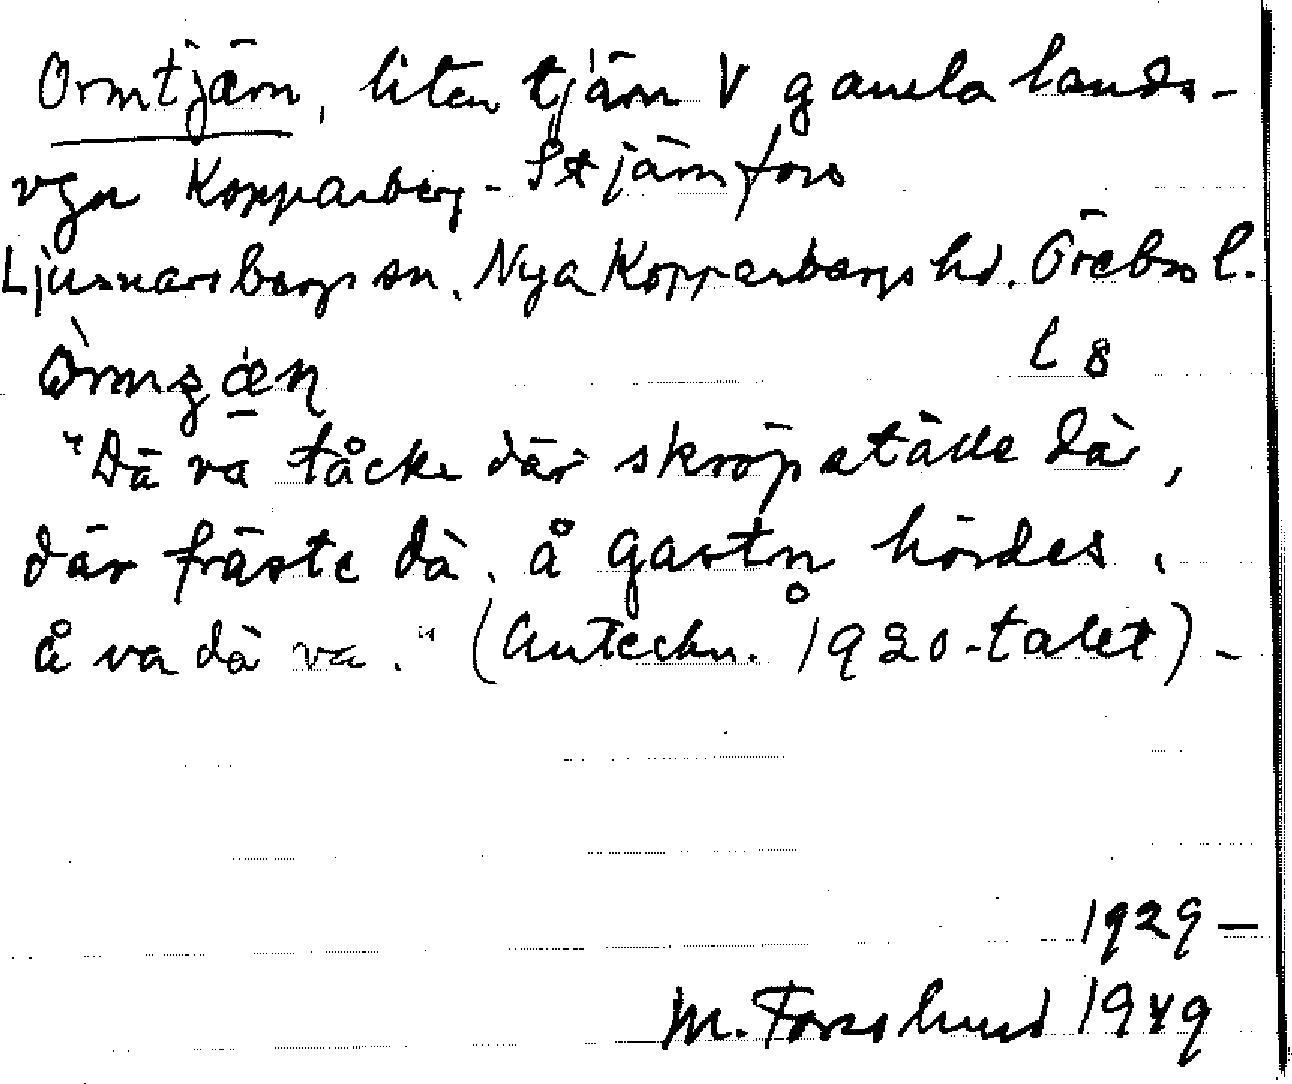 Ormtjärn, liten tjärn V gamla lands-
vgn Kopparberg - Stjärnfors
Ljusnarsbergs sn. Nya Kopparbergs hd. Örebro l.
l 8
"Dä va tåcke där skröpställe dä,
där fräste dä, å gastn hördes,
å va dä va." (Anteckn. 1920-talet) -
1929 -
M. Forsslund 1949